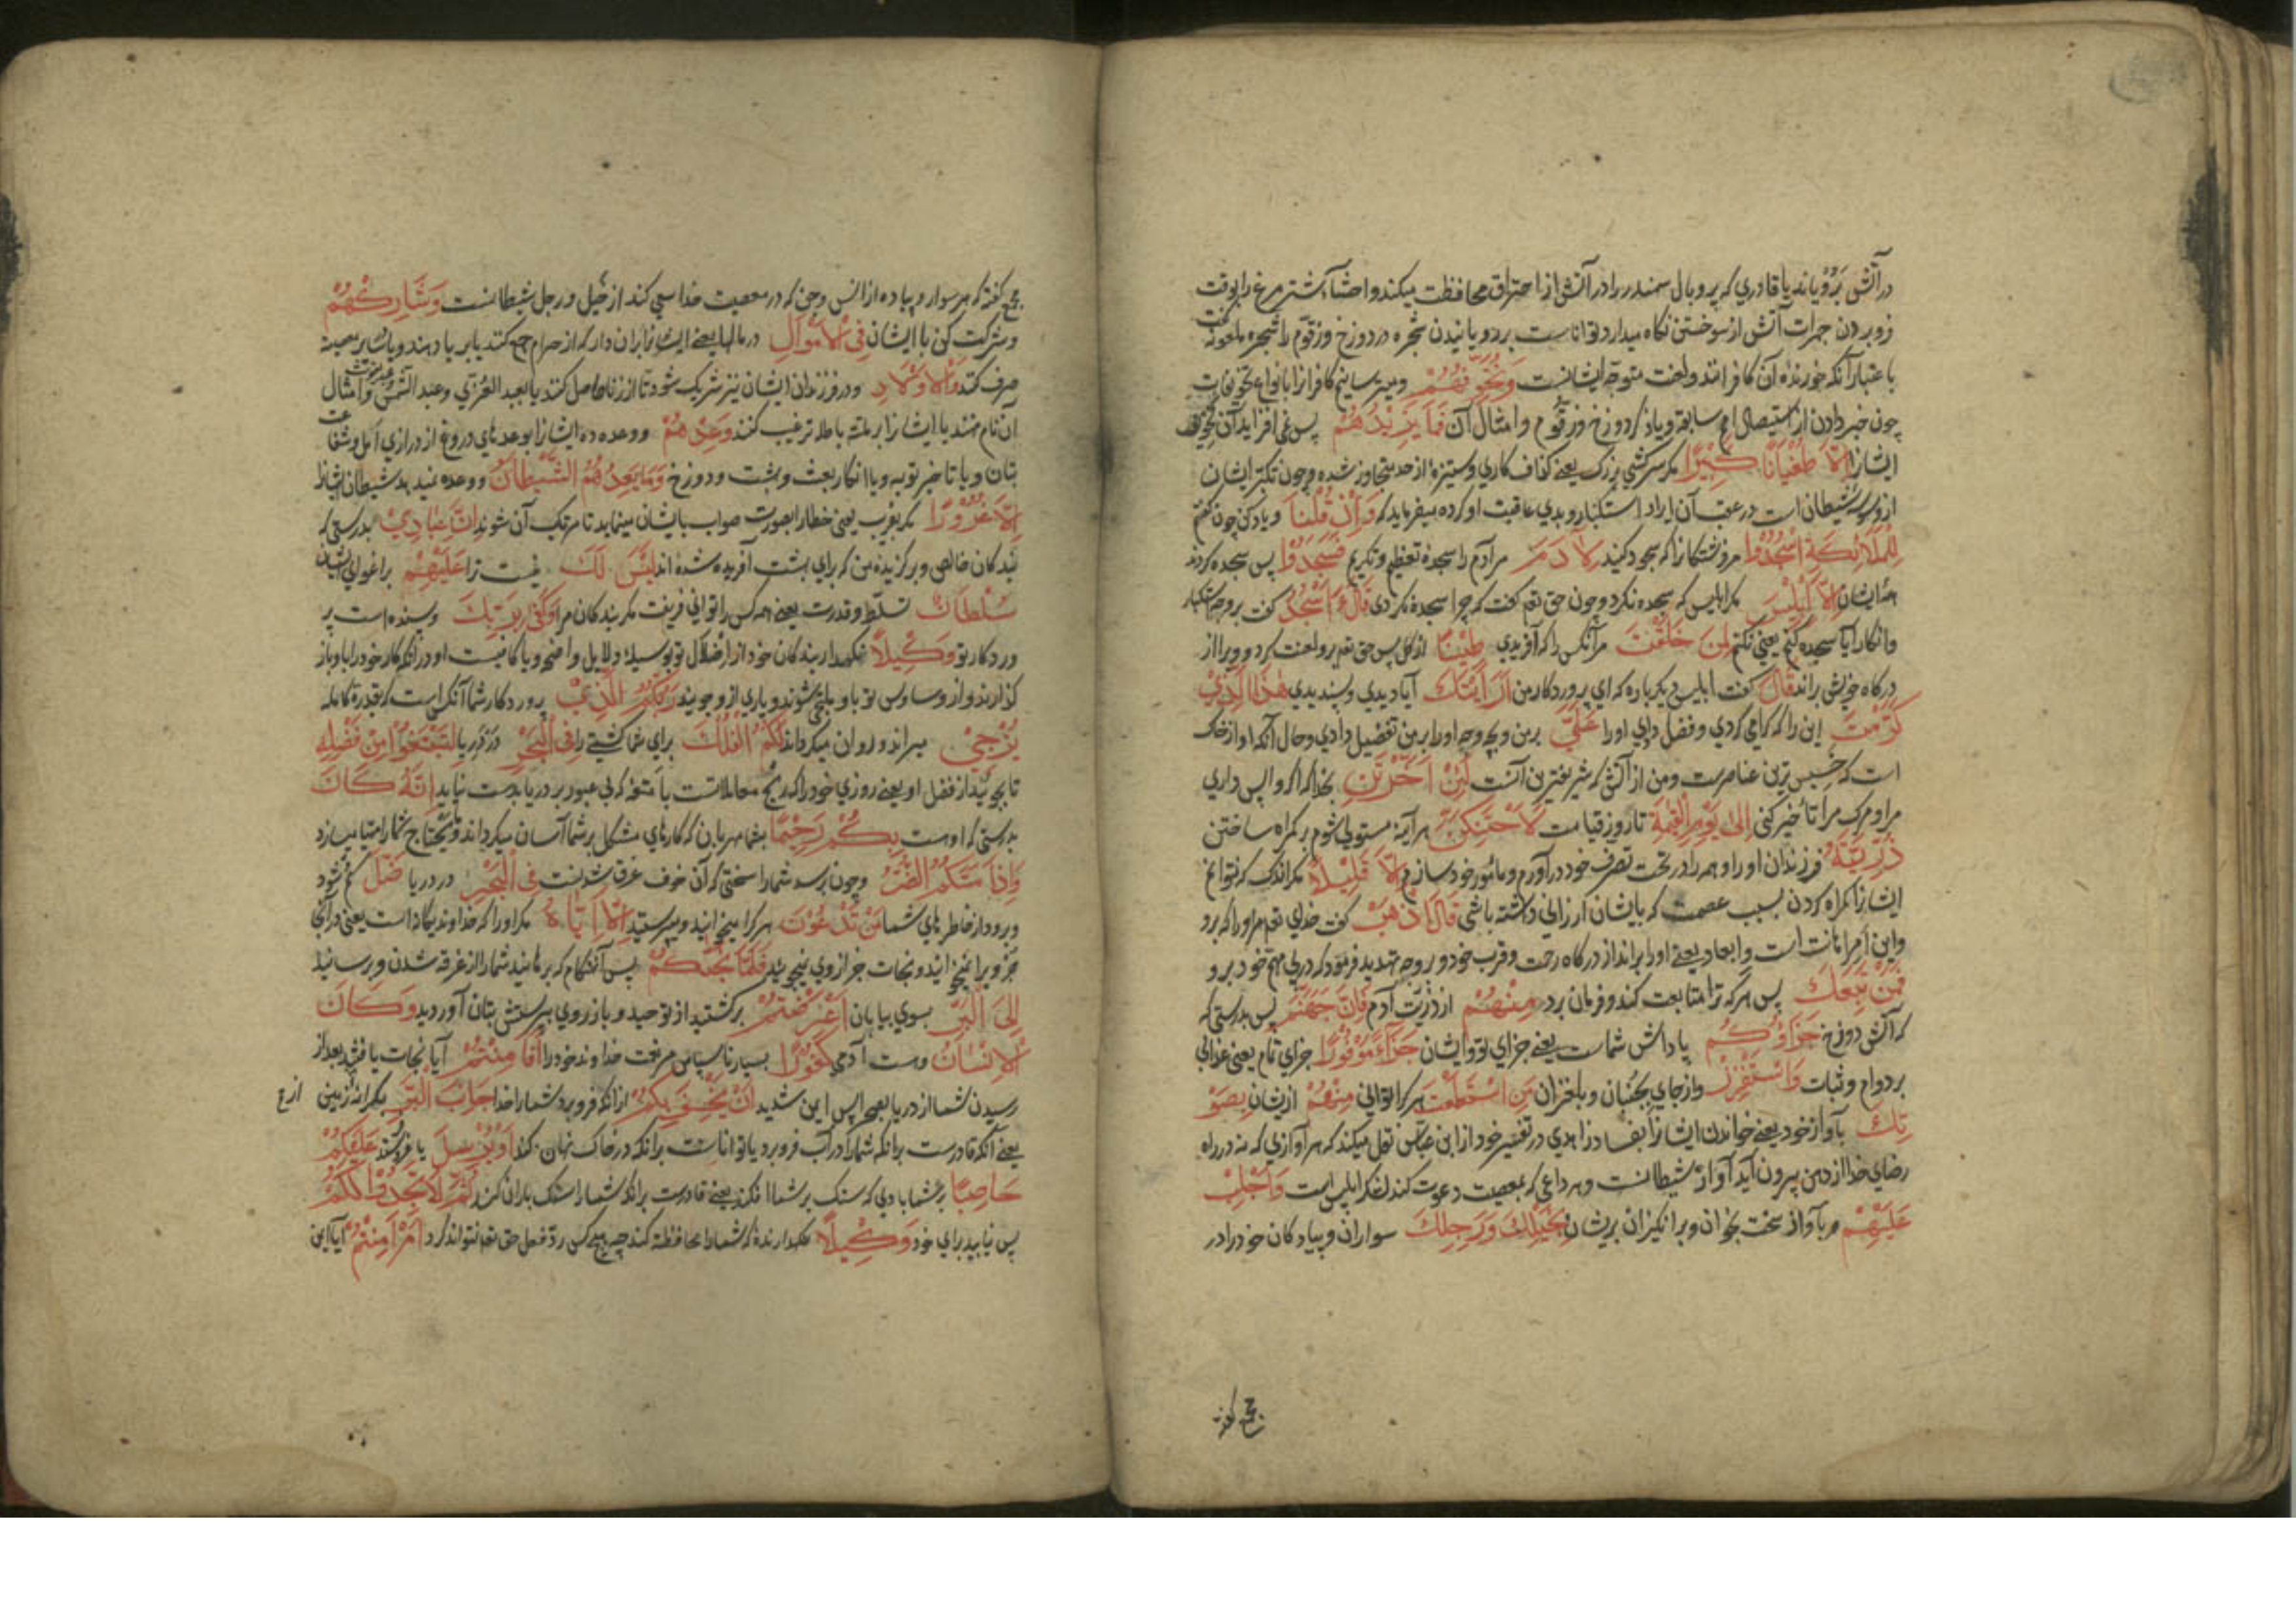 در آتش برویاند یا قادری که پر و بال سمندر را در آتش از احتراق محافظت میکند و احشاء شتر مرغ را بوقت
فرو بردن جمرات آتش از سوختن نگاه میدارد توانا است برویانیدن شجره در دوزخ و زقّوم را شجره ملعونه گفت
باعتبار آنکه خورندهٔ آن کافرانند و لعنت متوجه ایشانست وَنُخَوِّفُهُمْ و میترسانیم کافرانرا بانواع تخویفات
چون خبر دادن از استیصال امم سابقه و یاد کردن دوزخ و زقّوم و امثال آن فَمَا يَزِيْدُهُمْ پس نمی افزاید آن تخویف
ایشانرا اِلَّا طُغْيَانًا كَبِيْرًا مگر سرکشی بزرگ یعنی کفاف کاری و ستیزه از حد متجاوز شده و چون تکبر ایشان
از وسوسه شیطان است در عقب آن ایراد استکبار و بدی عاقبت او کرده میفرماید که وَاِذْ قُلْنَا و یاد کن چون گفتیم
لِلْمَلَائِكَةِ اسْجُدُوْا مر فرشتگانرا که سجود کنید لِاٰدَمَ مر آدم را سجدهٔ تعظیم و تکریم فَسَجَدُوْا پس سجده کردند
همه ایشان اِلَّا اِبْلِيْسَ مگر ابلیس که سجده نکرد و چون حق تعم گفت که چرا سجده نکردی قَالَ ءَاَسْجُدُ گفت بر وجه استکبار
و انکار آیا سجده کنم یعنی نکنم لِمَنْ خَلَقْتَ مر آنکس را که آفریدی طِيْنًا از گل پس حق تعم برو لعنت کرد و ویرا از
درگاه خویش براند قَالَ گفت ابلیس دیگر باره که ای پروردگار من اَرَاَيْتَكَ آیا دیدی و پسندیدی هٰذَا الَّذِيْ
كَرَّمْتَ این را که گرامی کردی و فضل دادی او را عَلَيَّ بر من و بچه وجه او را بر من تفضیل دادی و حال آنکه او از خاک
است که خسیس ترین عناصر است و من از آتش که شریفترین آنست لَئِنْ اَخَّرْتَنِ بخدا که اگر واپس داری
مرا و مرگ مرا تأخیر کنی اِلٰى يَوْمِ الْقِيٰمَةِ تا روز قیامت لَاَحْتَنِكَنَّ هر آینه مستولی شوم بر گمراه ساختن
ذُرِّيَّتَهُ فرزندان او را و همه را در تحت تصرف خود در آورم و مأمور خود سازم اِلَّا قَلِيْلًا مگر اندک که نتوانم
ایشانرا گمراه کردن بسبب عصمت که بایشان ارزانی داشته باشی قَالَ اذْهَبْ گفت خدای تعم مر او را که برو
و این امر اهانت است و ابعاد یعنی او را براند از درگاه رحمت و قرب خود و بر وجه تهدید فرمود که در پی مهم خود برو
فَمَنْ تَبِعَكَ پس هر که ترا متابعت کند و فرمان برد مِنْهُمْ از ذریّت آدم فَاِنَّ جَهَنَّمَ پس بدرستی که
که آتش دوزخ جَزَاؤُكُمْ پاداش شماست یعنی جزای تو و ایشان جَزَاءً مَوْفُوْرًا جزای تمام یعنی عذابی
بر دوام و ثبات وَاسْتَفْزِزْ و از جای بجنبان و بلغزان مَنِ اسْتَطَعْتَ هر کرا توانی مِنْهُمْ ازیشان بِصَوْ
تِكَ بآواز خود یعنی خواندن ایشانرا بفساد زاهدی در تفسیر خود از ابن عباس نقل میکند که هر آوازی که نه در راه
رضای خدا از دهن بیرون آید آواز شیطانست و هر داعی که بمعصیت دعوت کند لشکر ابلیس است وَاَجْلِبْ
عَلَيْهِمْ و بآواز سخت بخوان و برانگیزان بریشان بِخَيْلِكَ وَرَجِلِكَ سواران و پیادگان خود را در
جمع گفته
جمع گفته که هر سوار و پیاده از انس و جن که در معصیت خدا سعی کند از خیل و رجل شیطانست وَشَارِكْهُمْ
و شرکت کن با ایشان فِى الْاَمْوَالِ در مالها یعنی ایشانرا بران دار که از حرام جمع کنند یا بریا دهند و یا در معصیة
صرف کنند وَالْاَوْلَادِ و در فرزندان ایشان نیز شریک شو تا از زنا حاصل کنند یا بعبد العزّی و عبد الشمس و امثال
آن نام نهند یا ایشانرا بر ملّة باطله ترغیب کنند وَعِدْهُمْ و وعده ده ایشانرا بوعدهای دروغ از درازی امل و شفاعت
بتان و یا تاخیر توبه و یا انکار بعث و بهشت و دوزخ وَمَا يَعِدُهُمُ الشَّيْطَانُ و وعده نمیدهد شیطان ایشانرا
اِلَّا غُرُوْرًا مگر بفریب یعنی خطا را بصورت صواب بایشان مینماید تا مرتکب آن شوند اِنَّ عِبَادِيْ بدرستی که
بندگان خالص و برگزیدهٔ من که برای بهشت آفریده شده اند لَيْسَ لَكَ نیست ترا عَلَيْهِمْ بر اغوای ایشان
سُلْطَانٌ تسلّط و قدرت یعنی همه کس را توانی فریفت مگر بندگان مرا وَكَفٰى بِرَبِّكَ و بسنده است پر
وردگار تو وَكِيْلًا نگهدار بندگان خود از اضلال تو بوسیلهٔ دلایل واضحه و یا کافیست او در آنکه کار خود را باو باز
گذارند و از وساوس تو باو ملتجی شوند و یاری ازو جویند رَبُّكُمُ الَّذِيْ پروردگار شما آنکس است که بقدرة کامله
يُزْجِيْ میراند و روان میگرداند لَكُمُ الْفُلْكَ برای شما کشتی را فِى الْبَحْرِ در دریا لِتَبْتَغُوْا مِنْ فَضْلِهِ
تا بجوئید از فضل او یعنی روزی خود را که ربح معاملاتست یا امتعهٔ که بی عبور بر دریا بدست نیاید اِنَّهُ كَانَ
بدرستی که او هست بِكُمْ رَحِيْمًا بشما مهربان که کارهای مشکل بر شما آسان میگرداند و ما یحتاج شما را مهیا میسازد
وَاِذَا مَسَّكُمُ الضُّرُّ و چون برسد شما را سختی که آن خوف غرق شدنست فِى الْبَحْرِ در دریا ضَلَّ گم شود
و برود از خاطرهای شما مَنْ تَدْعُوْنَ هر کرا میخوانید و میپرستید اِلَّا اِيَّاهُ مگر او را که خداوند یگانه است یعنی در آنجا
جز ویرا نمیخوانید و نجات جز از وی نمیجوئید فَلَمَّا نَجّٰىكُمْ پس آنهنگام که برهانید شما را از غرقه شدن و برسانید
اِلَى الْبَرِّ بسوی بیابان اَعْرَضْتُمْ برگشتید از توحید و باز روی بپرستش بتان آوردید وَكَانَ
الْاِنْسَانُ و هست آدمی كَفُوْرًا بسیار ناسپاس مر نعمت خداوند خود را اَفَاَمِنْتُمْ آیا نجات یافتید بعد از
رسیدن شما از دریا بصحرا پس ایمن شدید اَنْ يَخْسِفَ بِكُمْ از آنکه فرو برد شما را خدا جَانِبَ الْبَرِّ بکرانهٔ زمین
یعنی آنکه قادرست برانکه شما را در آب فرو برد یا تواناست برانکه در خاک نهان کند اَوْ يُرْسِلَ یا فرستد عَلَيْكُمْ
حَاصِبًا بر شما بادی که سنگ بر شما افکند یعنی قادرست برانکه شما را سنگ باران کند ثُمَّ لَا تَجِدُوْا لَكُمْ
پس نیابید برای خود وَكِيْلًا نگهدارندهٔ که شما را محافظت کند چه هیچ کس ردّ فعل حق تعم نتواند کرد اَمْ اَمِنْتُمْ آیا ایمن